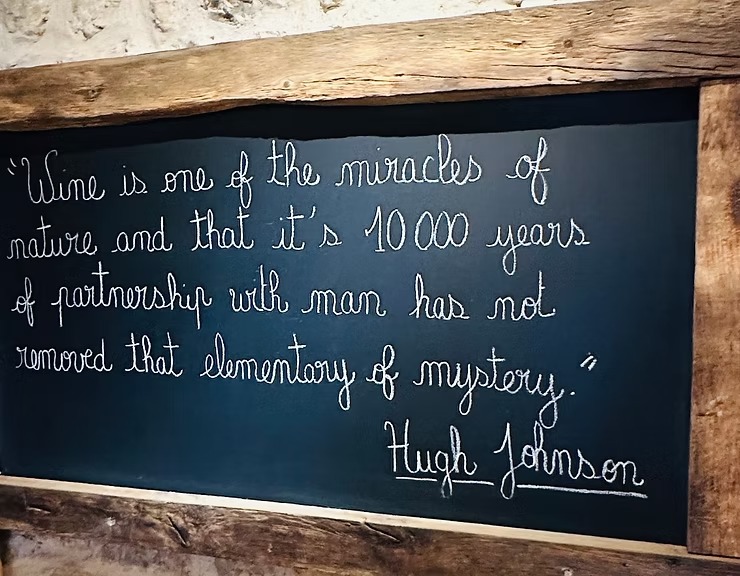 "Wine is one of the miracles of
nature and that it's 10 000 years
of partnership with man has not
removed that elementary of mystery."
Hugh Johnson